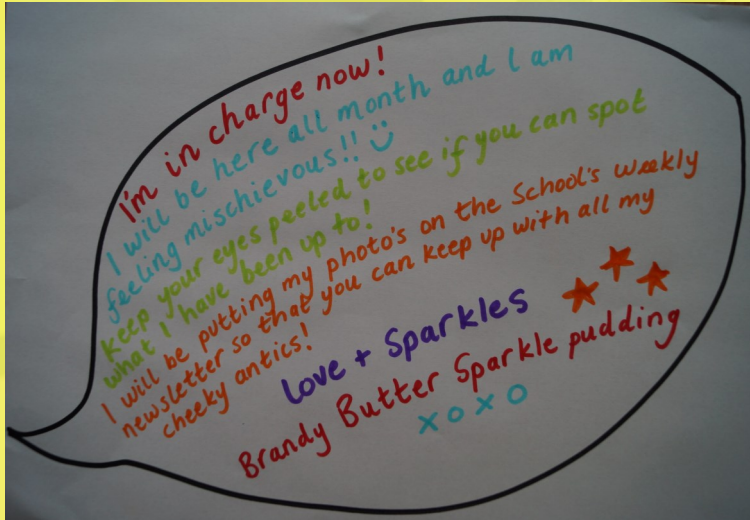 I'm in charge now!
I will be here all month and I am
feeling mischievous!! :)
keep your eyes peeled to see if you can spot
what I have been up to!
I will be putting my photo's on the School's weekly
newsletter so that you can keep up with all my
cheeky antics!
love + Sparkles
Brandy Butter Sparkle pudding
xoxo